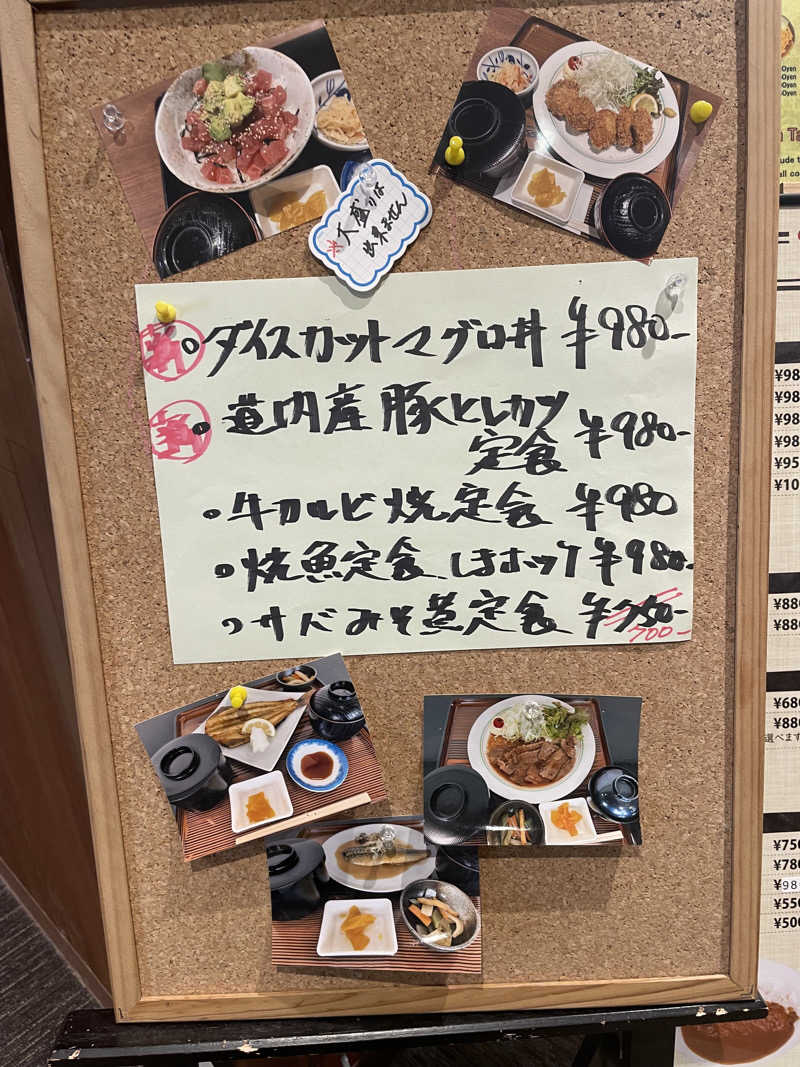 ※大盛りは
出来ません
新
・ダイスカットマグロ丼 ¥980-
新
・道内産豚ヒレカツ
定食 ¥980-
・牛カルビ焼定食 ¥980
・焼魚定食、しまホッケ ¥980-
・サバみそ煮定食 ¥750-
700-
Oyen
Oyen
Oyen
Oyen
¥98
¥98
¥98
¥98
¥95
¥10
¥880
¥880
¥680
¥880
選べます
¥750
¥780
¥98
¥550
¥500